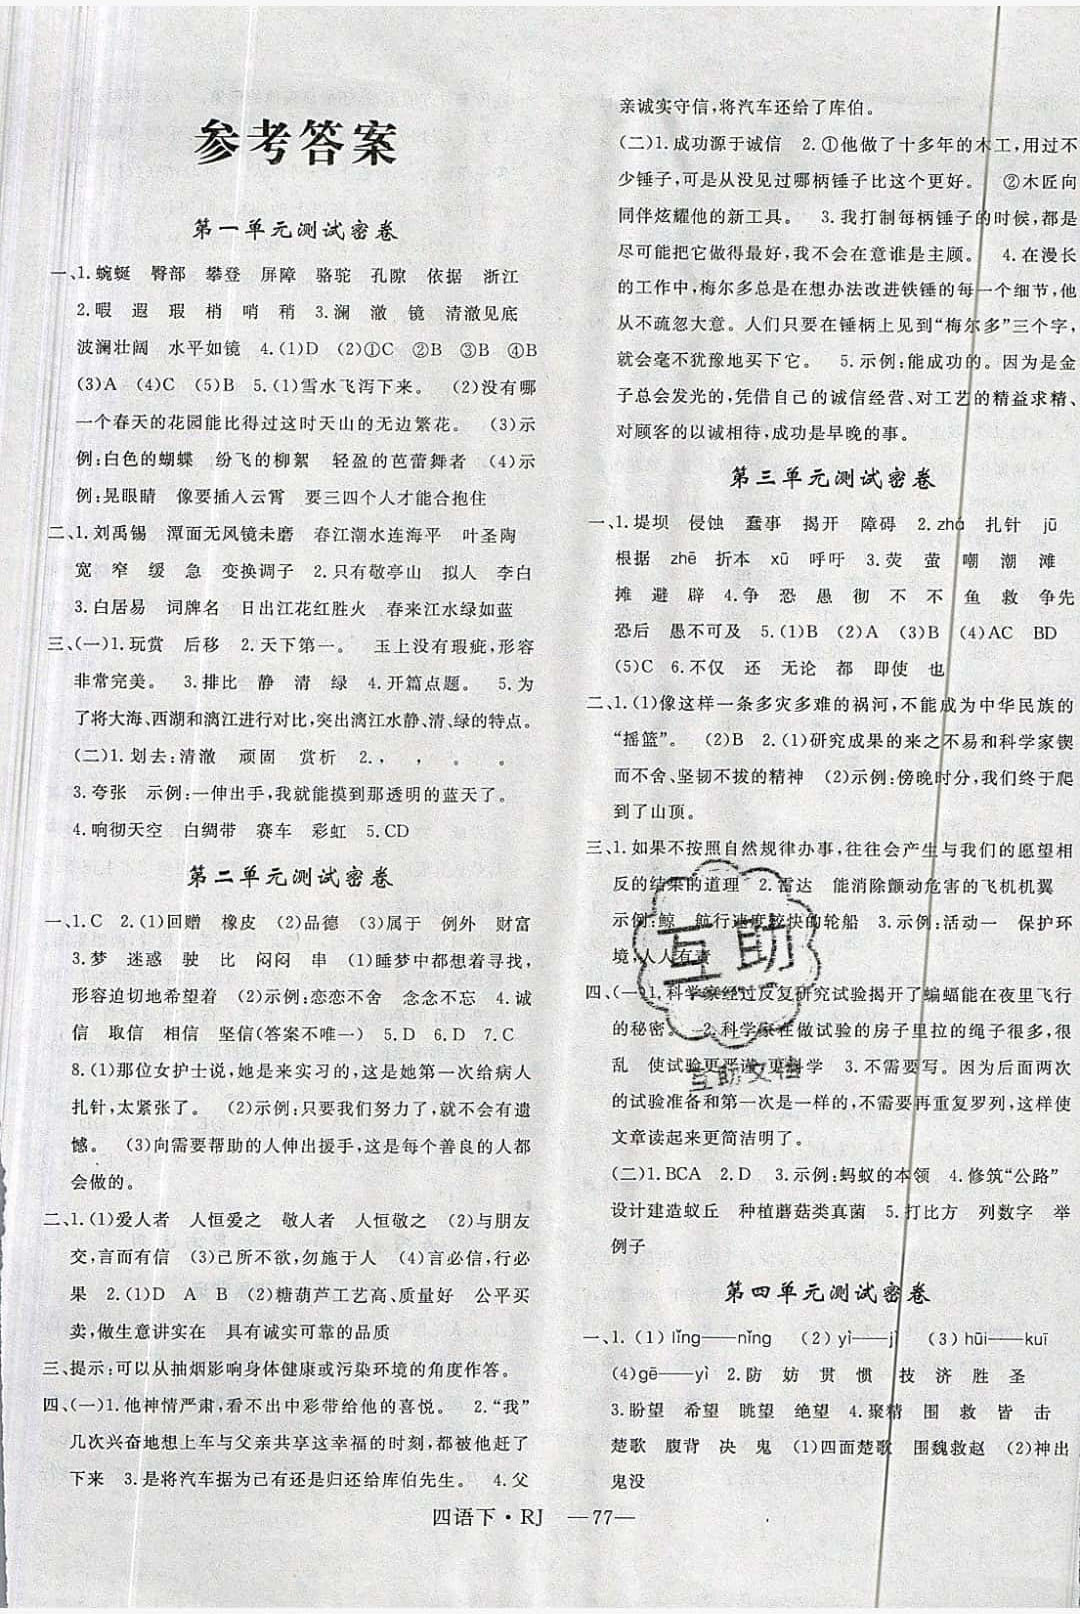 参考答案
第一单元测试密卷
一、1.蜿蜒 臀部 攀登 屏障 骆驼 孔隙 依据 浙江
2.暇 遐 瑕 梢 哨 稍 3.澜 澈 镜 清澈见底
波澜壮阔 水平如镜 4.(1)D (2)①C ②B ③B ④B
(3)A (4)C (5)B 5.(1)雪水飞泻下来。 (2)没有哪
一个春天的花园能比得过这时天山的无边繁花。 (3)示
例:白色的蝴蝶 纷飞的柳絮 轻盈的芭蕾舞者 (4)示
例:晃眼睛 像要插入云霄 要三四个人才能合抱住
二、1.刘禹锡 潭面无风镜未磨 春江潮水连海平 叶圣陶
宽 窄 缓 急 变换调子 2.只有敬亭山 拟人 李白
3.白居易 词牌名 日出江花红胜火 春来江水绿如蓝
三、(一)1.玩赏 后移 2.天下第一。 玉上没有瑕疵,形容
非常完美。 3.排比 静 清 绿 4.开篇点题。 5.为
了将大海、西湖和漓江进行对比,突出漓江水静、清、绿的特点。
(二)1.划去:清澈 顽固 赏析 2., , 。 。
3.夸张 示例:一伸出手,我就能摸到那透明的蓝天了。
4.响彻天空 白绸带 赛车 彩虹 5.CD
第二单元测试密卷
一、1.C 2.(1)回赠 橡皮 (2)品德 (3)属于 例外 财富
3.梦 迷惑 驶 比 闷闷 串 (1)睡梦中都想着寻找,
形容迫切地希望着 (2)示例:恋恋不舍 念念不忘 4.诚
信 取信 相信 坚信(答案不唯一) 5.D 6.D 7.C
8.(1)那位女护士说,她是来实习的,这是她第一次给病人
扎针,太紧张了。 (2)示例:只要我们努力了,就不会有遗
憾。 (3)向需要帮助的人伸出援手,这是每个善良的人都
会做的。
二、1.(1)爱人者 人恒爱之 敬人者 人恒敬之 (2)与朋友
交,言而有信 (3)己所不欲,勿施于人 (4)言必信,行必
果 2.(1)D A B (2)糖葫芦工艺高、质量好 公平买
卖,做生意讲实在 具有诚实可靠的品质
三、提示:可以从抽烟影响身体健康或污染环境的角度作答。
四、(一)1.他神情严肃,看不出中彩带给他的喜悦。 2.“我”
几次兴奋地想上车与父亲共享这幸福的时刻,都被他赶了
下来 3.是将汽车据为己有还是归还给库伯先生。 4.父
亲诚实守信,将汽车还给了库伯。
(二)1.成功源于诚信 2.①他做了十多年的木工,用过不
少锤子,可是从没见过哪柄锤子比这个更好。 ②木匠向
同伴炫耀他的新工具。 3.我打制每柄锤子的时候,都是
尽可能把它做得最好,我不会在意谁是主顾。 4.在漫长
的工作中,梅尔多总是在想办法改进铁锤的每一个细节,他
从不疏忽大意。人们只要在锤柄上见到“梅尔多”三个字,
就会毫不犹豫地买下它。 5.示例:能成功的。因为是金
子总会发光的,凭借自己的诚信经营、对工艺的精益求精、
对顾客的以诚相待,成功是早晚的事。
第三单元测试密卷
一、1.堤坝 侵蚀 蠢事 揭开 障碍 2.zhā 扎针 jū
根据 zhē 折本 xū 呼吁 3.荧 萤 嘲 潮 滩
摊 避 辟 4.争 恐 愚 彻 不 不 鱼 救 争先
恐后 愚不可及 5.(1)B (2)A (3)B (4)AC BD
(5)C 6.不仅 还 无论 都 即使 也
二、1.(1)像这样一条多灾多难的祸河,不能成为中华民族的
“摇篮”。 (2)B 2.(1)研究成果的来之不易和科学家锲
而不舍、坚韧不拔的精神 (2)示例:傍晚时分,我们终于爬
到了山顶。
三、1.如果不按照自然规律办事,往往会产生与我们的愿望相
反的结果的道理 2.雷达 能消除颤动危害的飞机机翼
示例:鲸 航行速度较快的轮船 3.示例:活动一 保护环
境,人人有责
四、(一)1.科学家经过反复研究试验揭开了蝙蝠能在夜里飞行
的秘密。 2.科学家在做试验的房子里拉的绳子很多,很
乱 使试验更严谨,更科学 3.不需要写。因为后面两次
的试验准备和第一次是一样的,不需要再重复罗列,这样使
文章读起来更简洁明了。
(二)1.BCA 2.D 3.示例:蚂蚁的本领 4.修筑“公路”
设计建造蚁丘 种植蘑菇类真菌 5.打比方 列数字 举
例子
第四单元测试密卷
一、1.(1)lǐng——nǐng (2)yì——jì (3)hūi——kuī
(4)gē——yì 2.防 妨 贯 惯 技 济 胜 圣
3.盼望 希望 眺望 绝望 4.聚精 围 救 皆 击
楚歌 腹背 决 鬼 (1)四面楚歌 围魏救赵 (2)神出
鬼没
四语下·RJ —77—
互助
互助文档